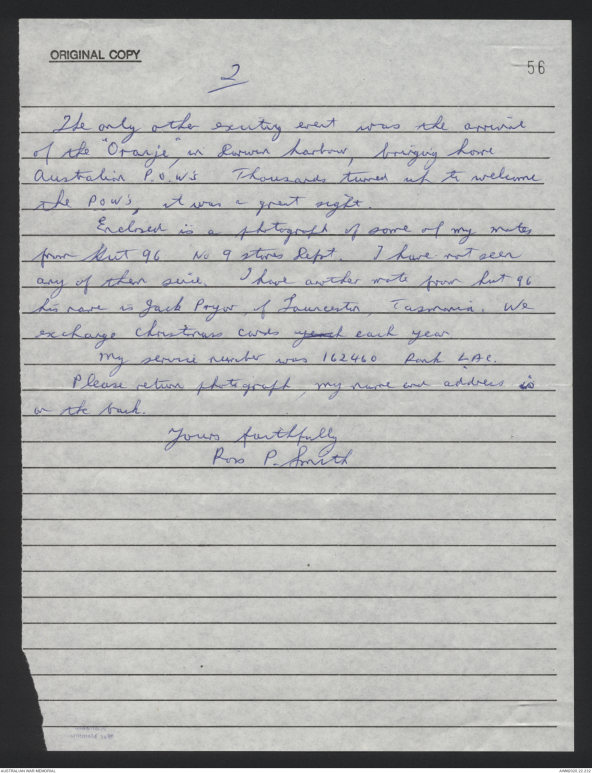 ORIGINAL COPY
2
56
The only other exciting event was the arrival
of the "Oranje", in Darwin harbour, bringing home
Australian P.O.W's Thousands turned up to welcome
the POW's, it was a great sight.
Enclosed is a photograph of some of my mates
from Hut 96 No 9 stores Dept. I have not seen
any of them since. I have another mate from hut 96
his name is Jack Pryor, of Launceston, Tasmania. We
exchange Christmas cards each year
My service number was 162460 Rank LAC.
Please return photograph, my name and address is
on the back.
Yours faithfully
Ross P. Smith
AUSTRALIAN WAR MEMORIAL
AWM2020.22.232